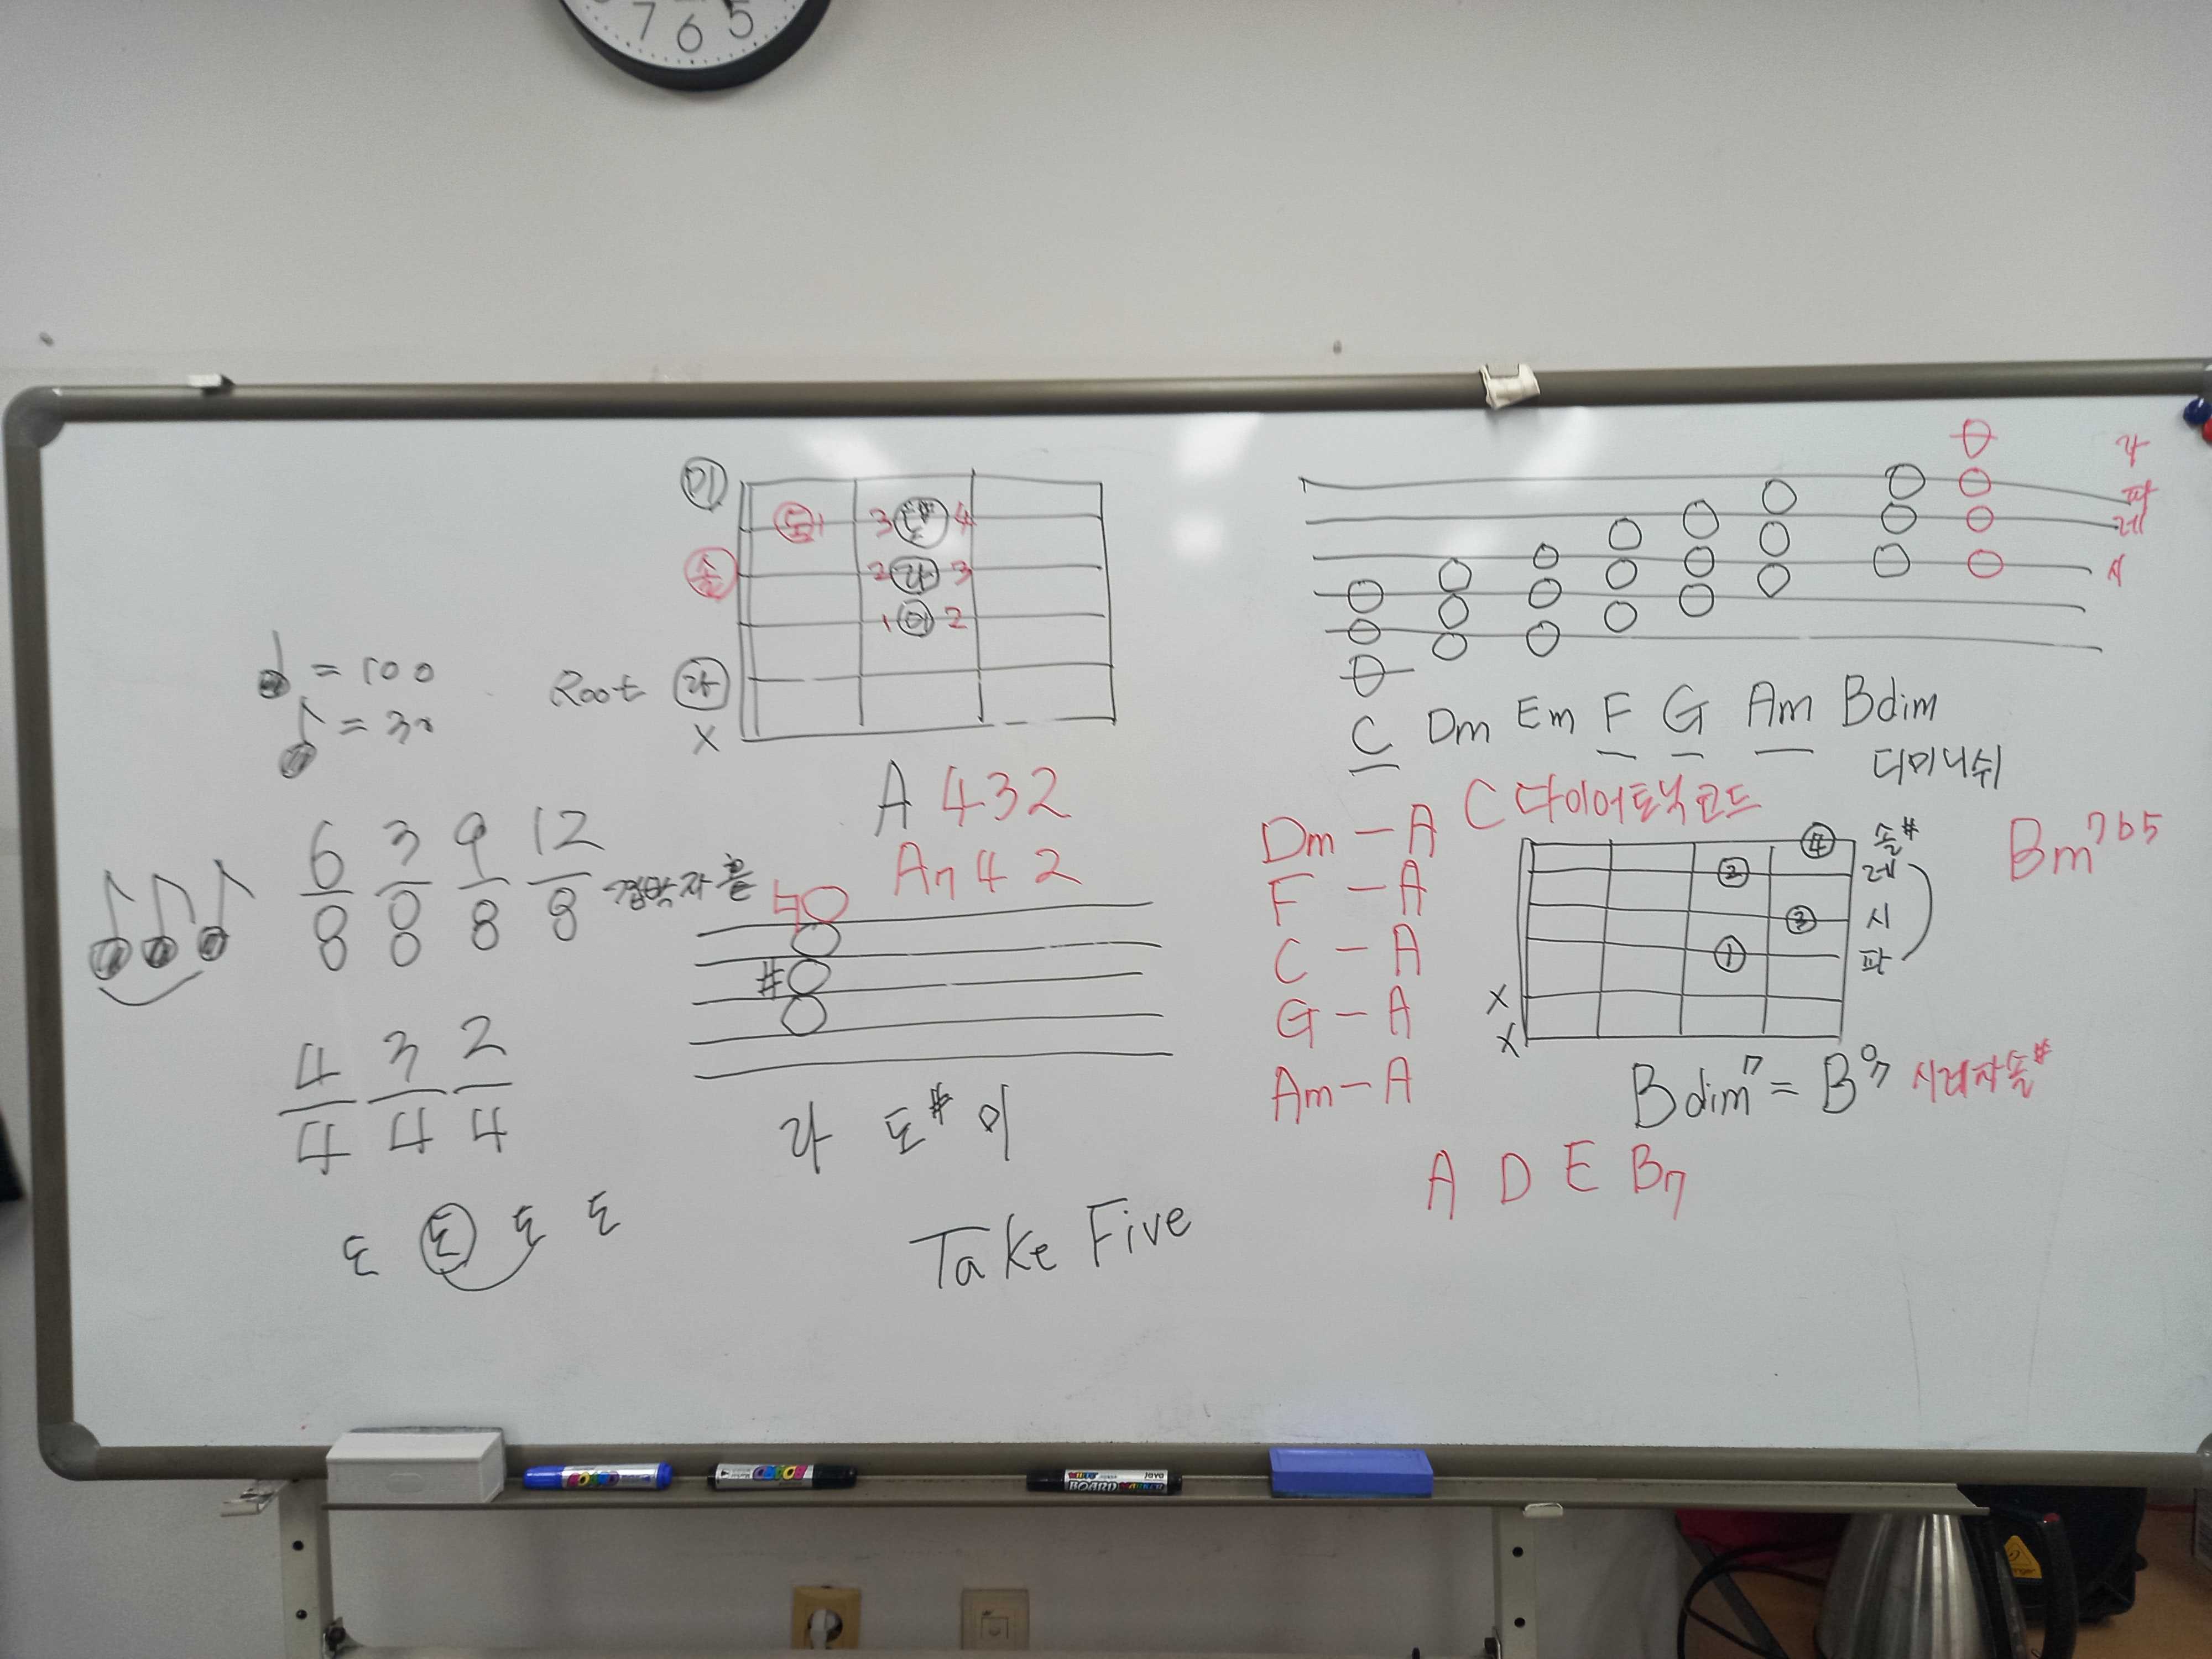 7 6 5
미
도 1 3 도# 4
솔 2 라 3
1 미 2
Root 라
X
♩ = 100
♪ =
A 432
A7 4 2
6/8 3/8 9/8 12/8 겹박자
4/4 3/4 2/4
도 도 도 도
♮
#
라 도# 미
Take Five
라
파
레
시
C Dm Em F G Am Bdim
디미니쉬
C 다이어토닉 코드
Dm - A
F - A
C - A
G - A
Am - A
4 솔#
2 레
3 시
1 파
X
X
Bm7b5
Bdim7 = B°7 시레파솔#
A D E B7
BOARD
BOARD MARKER